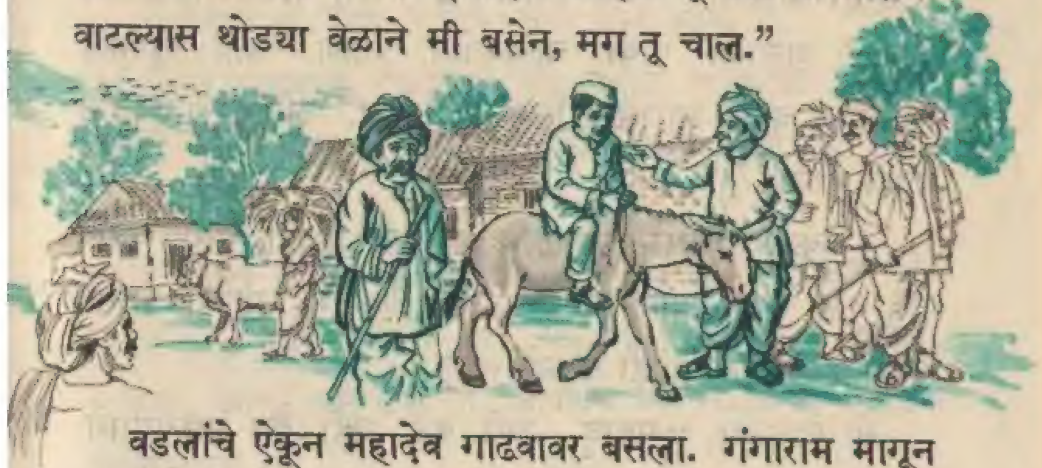 वाटल्यास थोड्या वेळाने मी बसेन, मग तू चाल.”
वडलांचे ऐकून महादेव गाढवावर बसला. गंगाराम मागून